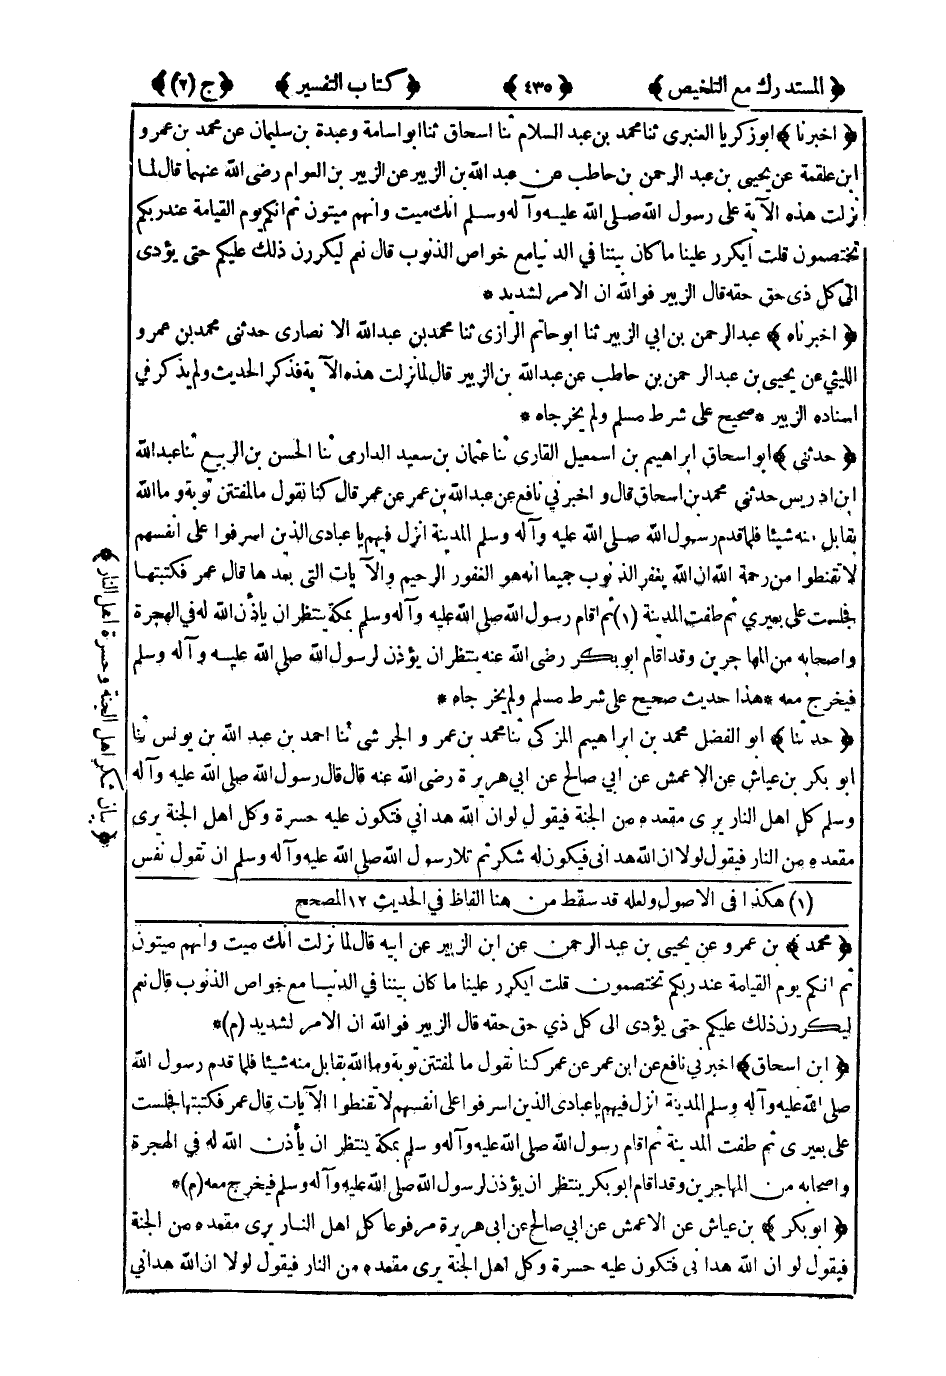 ﴿ المستدرك مع التلخيص ﴾ ﴿ ٤٣٥ ﴾ ﴿ كتاب التفسير ﴾ ﴿ ج (٢) ﴾
﴿ اخبرنا ﴾ ابو زكريا العنبرى ثنا محمد بن عبد السلام ثنا اسحاق ثنا ابو اسامة وعبدة بن سليمان عن محمد بن عمرو
ابن علقمة عن يحيى بن عبد الرحمن بن حاطب عن عبد الله بن الزبير عن الزبير بن العوام رضى الله عنهما قال لما
نزلت هذه الآية على رسول الله صلى الله عليه وآله وسلم انك ميت وانهم ميتون ثم انكم يوم القيامة عند ربكم
تختصمون قلت أيكرر علينا ما كان بيننا في الدنيا مع خواص الذنوب قال نعم ليكررن ذلك عليكم حتى يؤدى
الى كل ذى حق حقه قال الزبير فوالله ان الامر لشديد *
﴿ اخبرناه ﴾ عبد الرحمن بن ابي الزبير ثنا ابو حاتم الرازى ثنا محمد بن عبد الله الانصارى حدثنى محمد بن عمرو
الليثي عن يحيى بن عبد الرحمن بن حاطب عن عبد الله بن الزبير قال لما نزلت هذه الآية فذكر الحديث ولم يذكر في
اسناده الزبير * صحيح على شرط مسلم ولم يخرجاه *
﴿ حدثنى ﴾ ابو اسحاق ابراهيم بن اسمعيل القارى ثنا عثمان بن سعيد الدارمى ثنا الحسن بن الربيع ثنا عبد الله
ابن ادريس حدثني محمد بن اسحاق قال واخبرني نافع عن عبد الله بن عمر عن عمر قال كنا نقول ما لمفتتن توبة وما الله
بقابل منه شيئا فلما قدم رسول الله صلى الله عليه وآله وسلم المدينة انزل فيهم يا عبادى الذين اسرفوا على انفسهم
لا تقنطوا من رحمة الله ان الله يغفر الذنوب جميعا انه هو الغفور الرحيم والآيات التى بعدها قال عمر فكتبتها
فجلست على بعيري ثم طفت المدينة (١) ثم اقام رسول الله صلى الله عليه وآله وسلم بمكة ينتظر ان يأذن الله له في الهجرة
واصحابه من المهاجرين وقد اقام ابو بكر رضى الله عنه ينتظر ان يؤذن لرسول الله صلى الله عليه وآله وسلم
فيخرج معه * هذا حديث صحيح على شرط مسلم ولم يخرجاه *
﴿ حدثنا ﴾ ابو الفضل محمد بن ابراهيم المزكى ثنا محمد بن عمرو الجرشى ثنا احمد بن عبد الله بن يونس ثنا
ابو بكر بن عياش عن الاعمش عن ابي صالح عن ابي هريرة رضى الله عنه قال قال رسول الله صلى الله عليه وآله
وسلم كل اهل النار يرى مقعده من الجنة فيقول لو ان الله هداني فتكون عليه حسرة وكل اهل الجنة يرى
مقعده من النار فيقول لولا ان الله هدانى فيكون له شكر ثم تلا رسول الله صلى الله عليه وآله وسلم ان تقول نفس
﴿ بيان شكر اهل الجنة وحسرة اهل النار ﴾
(١) هكذا فى الاصول ولعله قد سقط من هنا الفاظ في الحديث ١٢ المصحح
﴿ محمد ﴾ بن عمرو عن يحيى بن عبد الرحمن عن ابن الزبير عن ابيه قال لما نزلت انك ميت وانهم ميتون
ثم انكم يوم القيامة عند ربكم تختصمون قلت ايكرر علينا ما كان بيننا في الدنيا مع خواص الذنوب قال نعم
ليكررن ذلك عليكم حتى يؤدى الى كل ذي حق حقه قال الزبير فوالله ان الامر لشديد (م)*
﴿ ابن اسحاق ﴾ اخبرني نافع عن ابن عمر عن عمر كنا نقول ما لمفتتن توبة وما الله بقابل منه شيئا فلما قدم رسول الله
صلى الله عليه وآله وسلم المدينة انزل فيهم يا عبادى الذين اسرفوا على انفسهم لا تقنطوا الآيات قال عمر فكتبتها فجلست
على بعيرى ثم طفت المدينة ثم اقام رسول الله صلى الله عليه وآله وسلم بمكة ينتظر ان يأذن الله له في الهجرة
واصحابه من المهاجرين وقد اقام ابو بكر ينتظر ان يؤذن لرسول الله صلى الله عليه وآله وسلم فيخرج معه (م)*
﴿ ابو بكر ﴾ بن عياش عن الاعمش عن ابي صالح عن ابى هريرة مرفوعا كل اهل النار يرى مقعده من الجنة
فيقول لو ان الله هدانى فتكون عليه حسرة وكل اهل الجنة يرى مقعده من النار فيقول لولا ان الله هداني